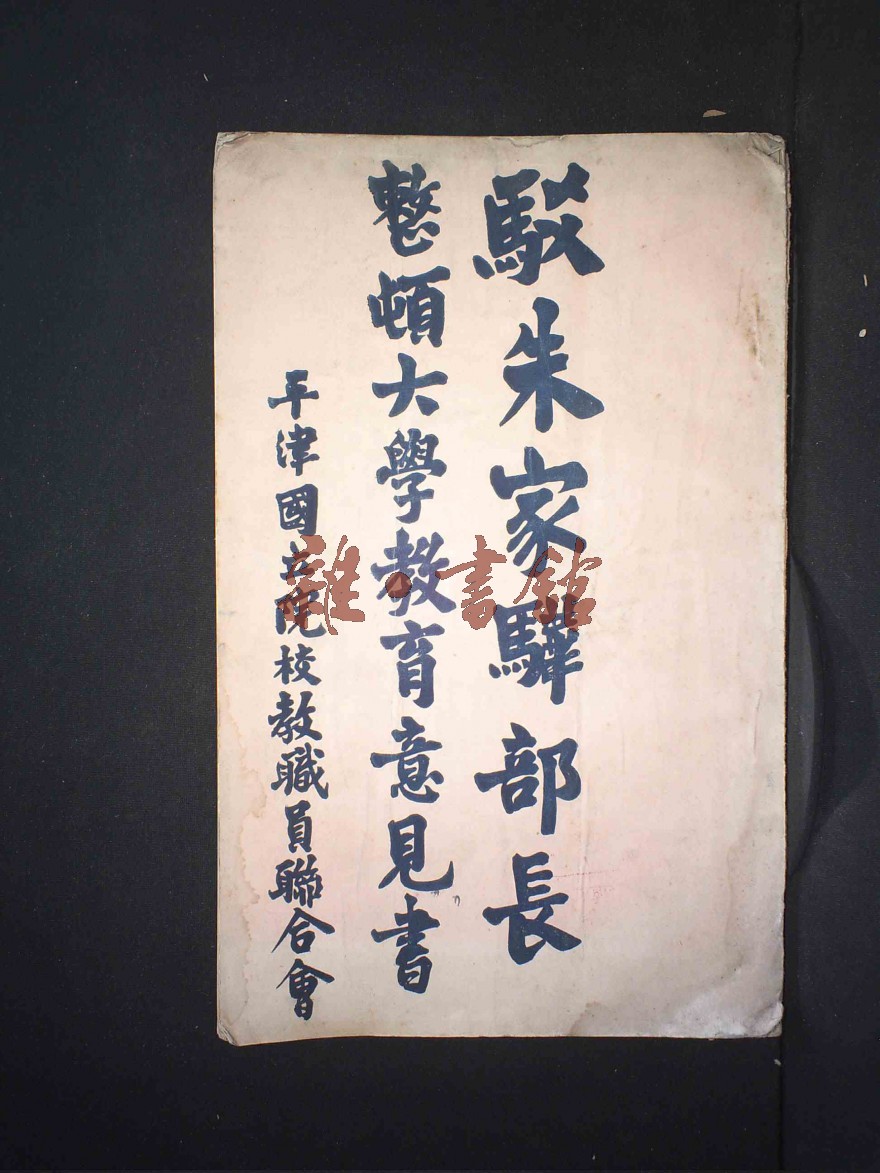 駁朱家驊部長
整頓大學教育意見書
平津國立院校教職員聯合會
雜·書館